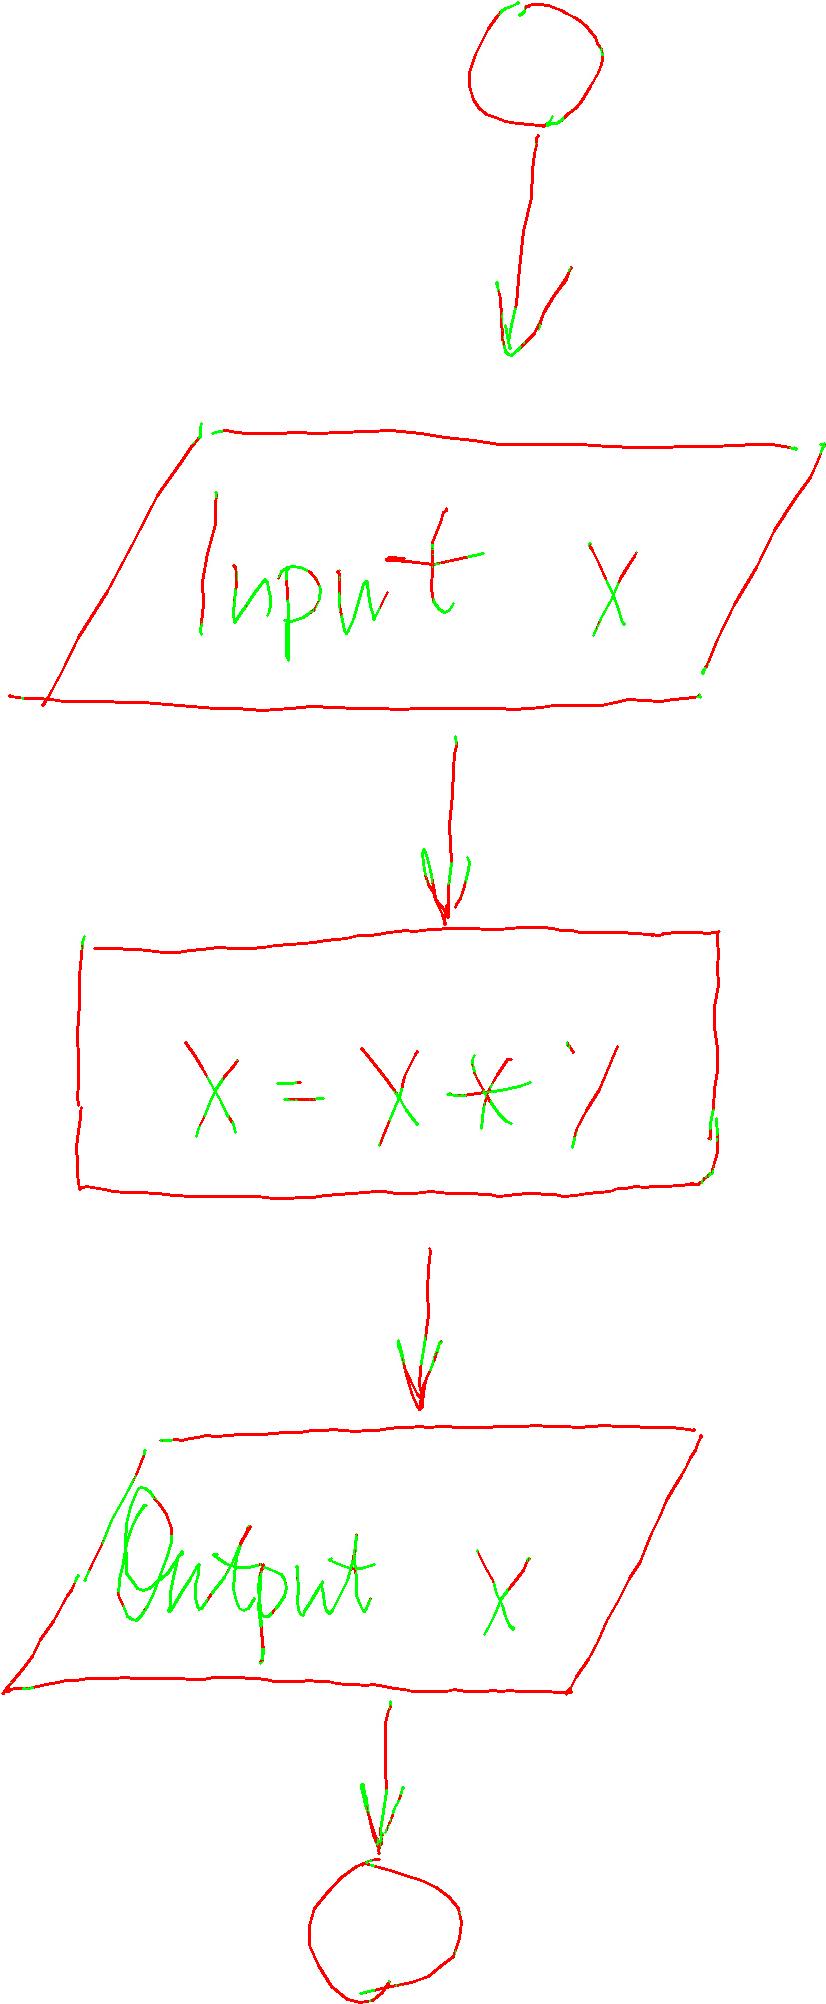 Input X
X = X *
Output X